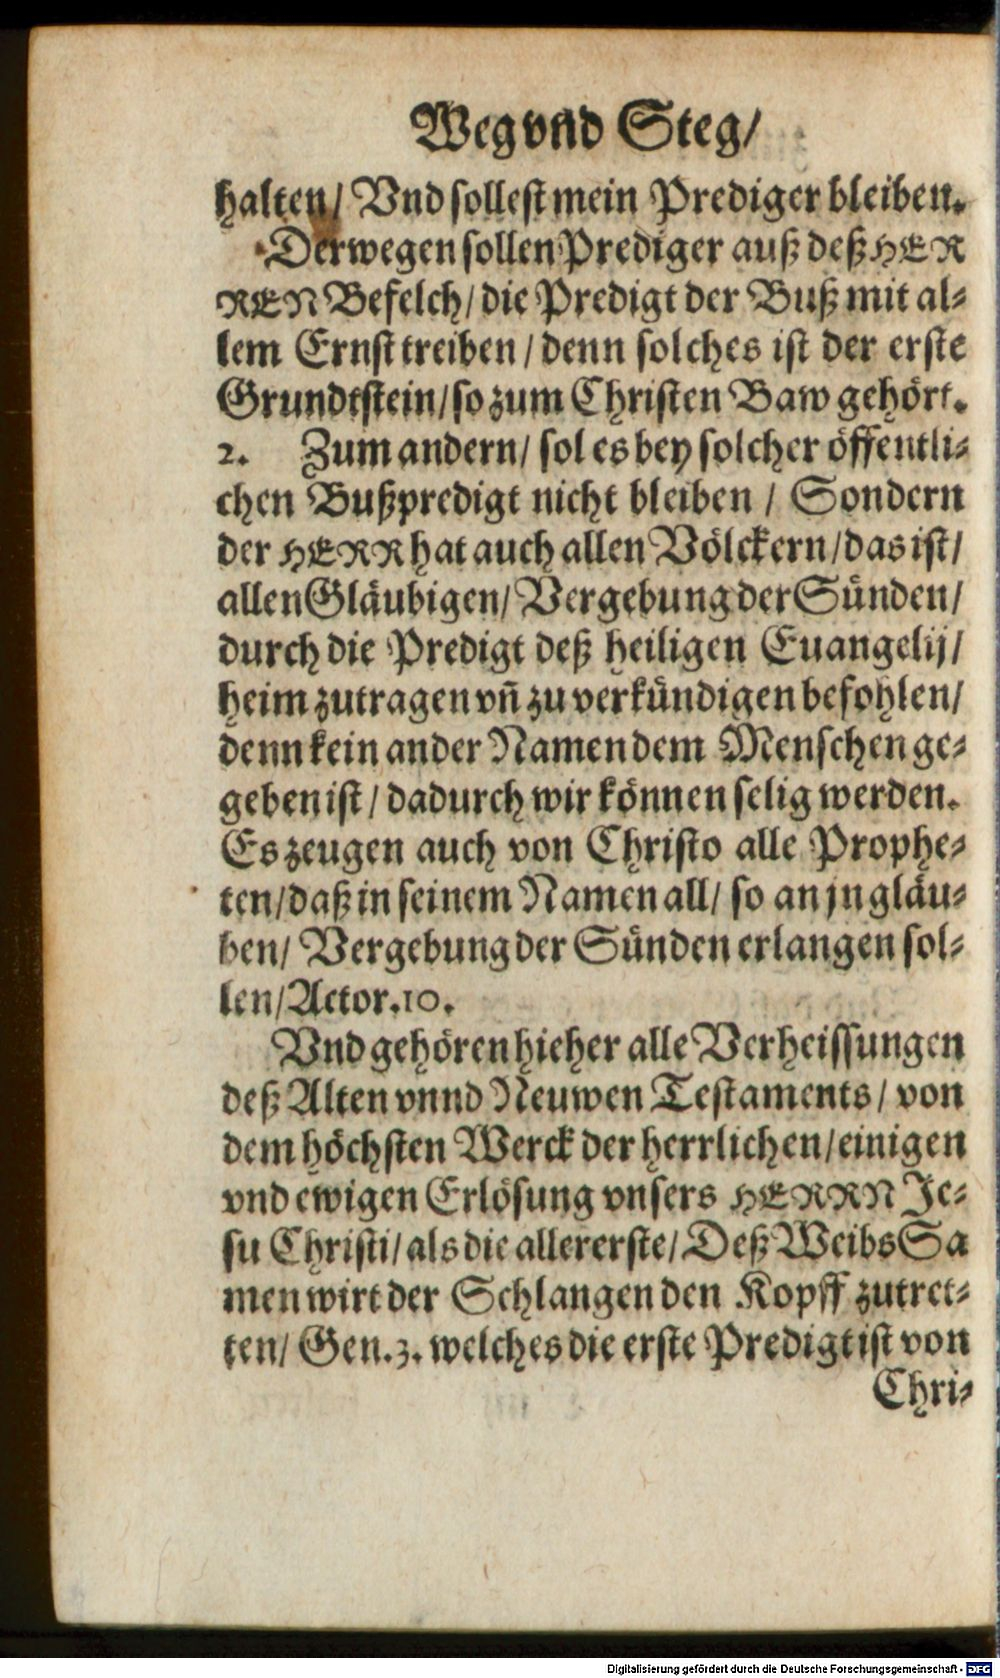 Weg vnd Steg/
halten/ Vnd sollest mein Prediger bleiben.
Derwegen sollen Prediger auß deß HER
REN Befelch/ die Predigt der Buß mit al-
lem Ernst treiben / denn solches ist der erste
Grundtstein/ so zum Christen Baw gehört.
2. Zum andern/ sol es bey solcher öffentli-
chen Bußpredigt nicht bleiben / Sondern
der HERR hat auch allen Völckern/ das ist/
allen Gläubigen/ Vergebung der Sünden/
durch die Predigt deß heiligen Euangelij/
heim zutragen vñ zu verkündigen befohlen/
denn kein ander Namen dem Menschen ge-
geben ist / dadurch wir können selig werden.
Es zeugen auch von Christo alle Prophe-
ten/ daß in seinem Namen all/ so an jn gläu-
ben/ Vergebung der Sünden erlangen sol-
len/ Actor. 10.
Vnd gehören hieher alle Verheissungen
deß Alten vnnd Neuwen Testaments / von
dem höchsten Werck der herrlichen/ einigen
vnd ewigen Erlösung vnsers HERRN Je-
su Christi/ als die allererste/ Deß Weibs Sa
men wirt der Schlangen den Kopff zutret-
ten/ Gen. 3. welches die erste Predigt ist von
Chri-
Digitalisierung gefördert durch die Deutsche Forschungsgemeinschaft - DFG